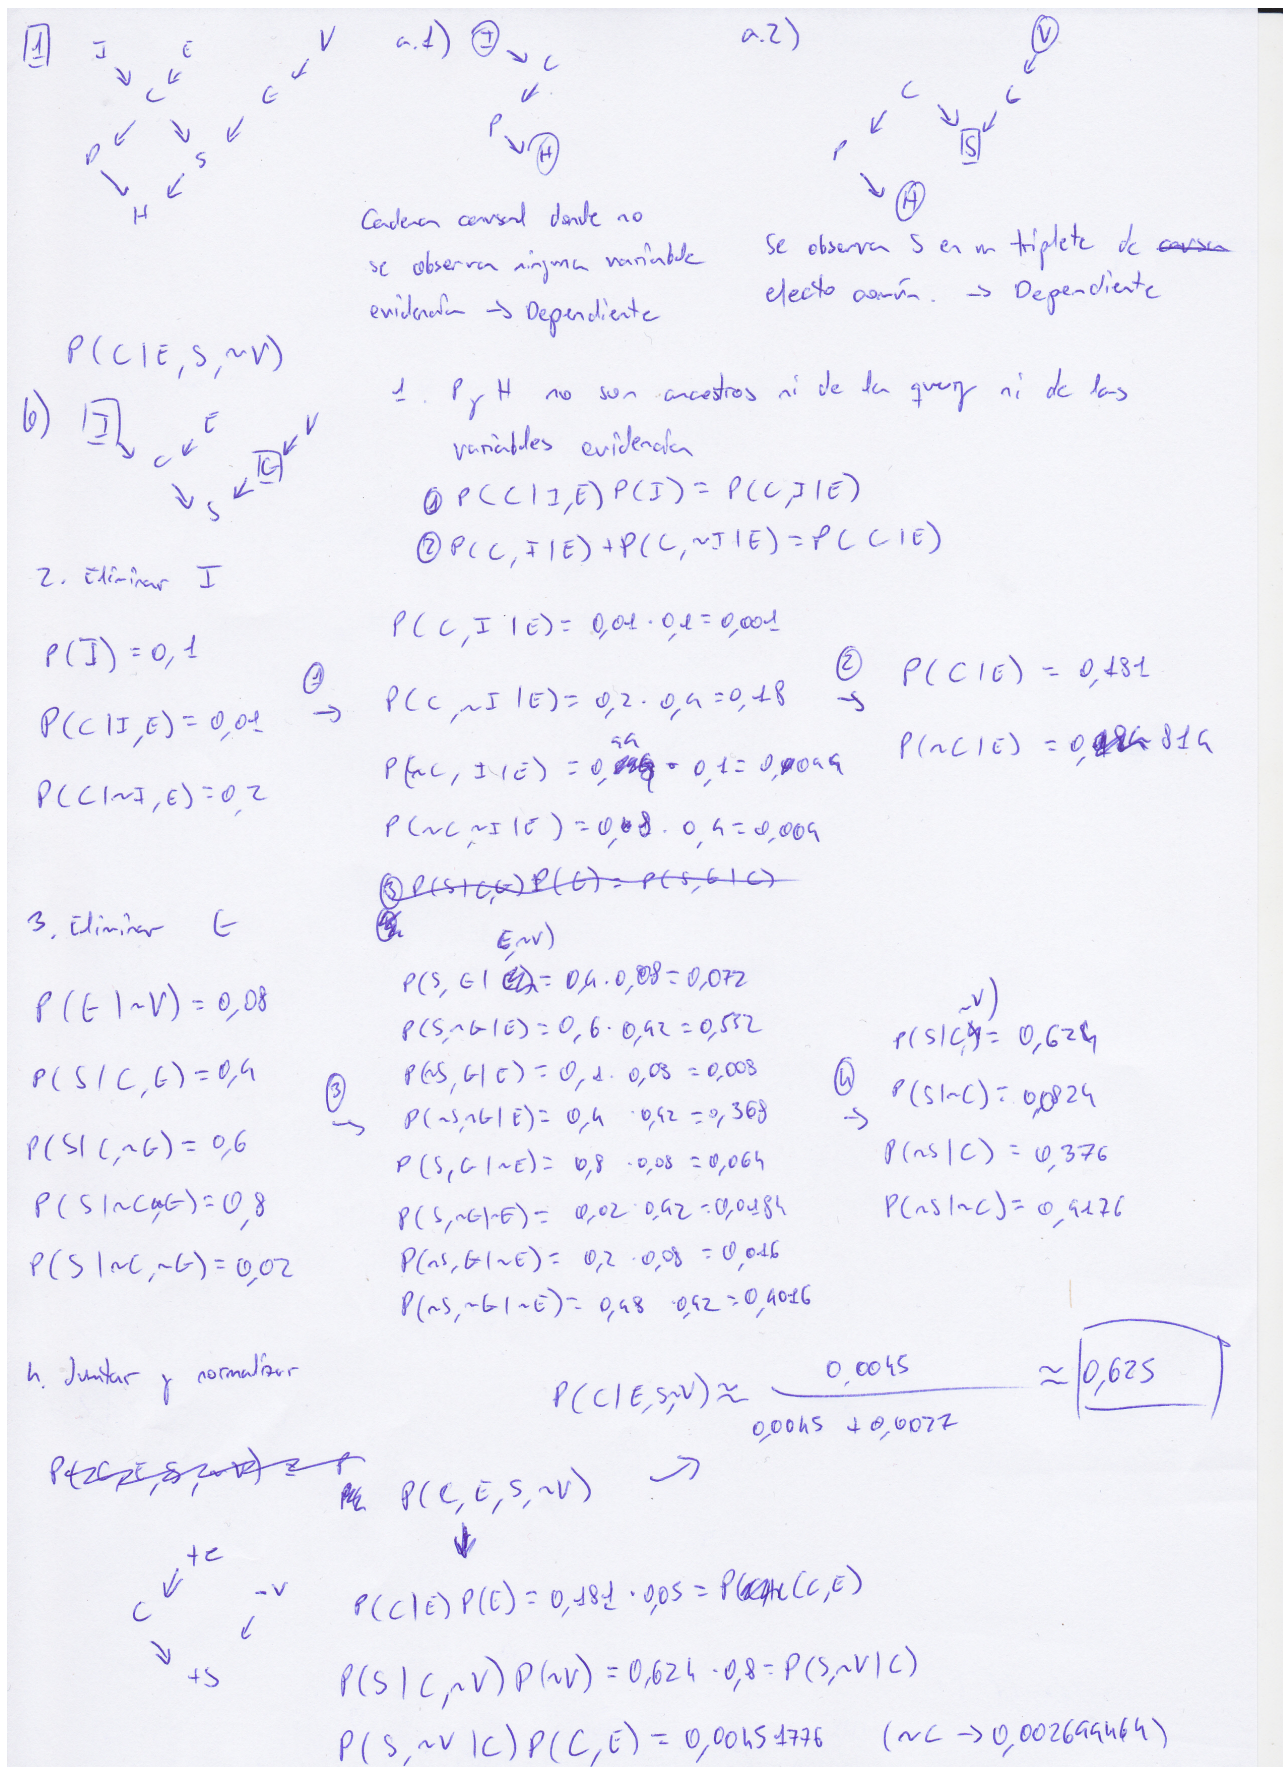 1
I E V
C G
P S
H
a.1) I
C
P
H
a.2) V
C G
P S
H
Cadena causal donde no
se observa ninguna variable
evidencia → Dependiente
Se observa S en un triplete de causa
efecto común. → Dependiente
P(C|E,S,~V)
b) I E V
C G
S
1. P y H no son ancestros ni de la query ni de las
variables evidencia
① P(C|I,E)P(I)=P(C,I|E)
② P(C,I|E)+P(C,~I|E)=P(C|E)
2. Eliminar I
P(I)=0,1
P(C|I,E)=0,01
P(C|~I,E)=0,2
① →
P(C,I|E)=0,01·0,1=0,001
P(C,~I|E)=0,2·0,9=0,18
P(~C,I|E)=0,99·0,1=0,099
P(~C,~I|E)=0,8·0,9=0,009
② →
P(C|E)=0,181
P(~C|E)=0,819
③ P(S|C,G)P(G)=P(S,G|C)
3. Eliminar G
P(G|~V)=0,08
P(S|C,G)=0,9
P(S|C,~G)=0,6
P(S|~C,G)=0,8
P(S|~C,~G)=0,02
③ →
E,~V)
P(S,G|=0,9·0,08=0,072
P(S,~G|E)=0,6·0,92=0,552
P(~S,G|E)=0,1·0,08=0,008
P(~S,~G|E)=0,4·0,92=0,368
P(S,G|~E)=0,8·0,08=0,064
P(S,~G|~E)=0,02·0,92=0,0184
P(~S,G|~E)=0,2·0,08=0,016
P(~S,~G|~E)=0,98·0,92=0,9016
④ →
~V)
P(S|C,=0,624
P(S|~C)=0,0824
P(~S|C)=0,376
P(~S|~C)=0,9176
4. Juntar y normalizar
P(C|E,S,~V)≈ 0,0045
0,0045+0,0027
≈ 0,625
P(C,E,S,~V)
+e
C -v
+s
P(C|E)P(E)=0,181·0,05=P(C,E)
P(S|C,~V)P(~V)=0,624·0,8=P(S,~V|C)
P(S,~V|C)P(C,E)=0,00451776 (~C→0,002699464)